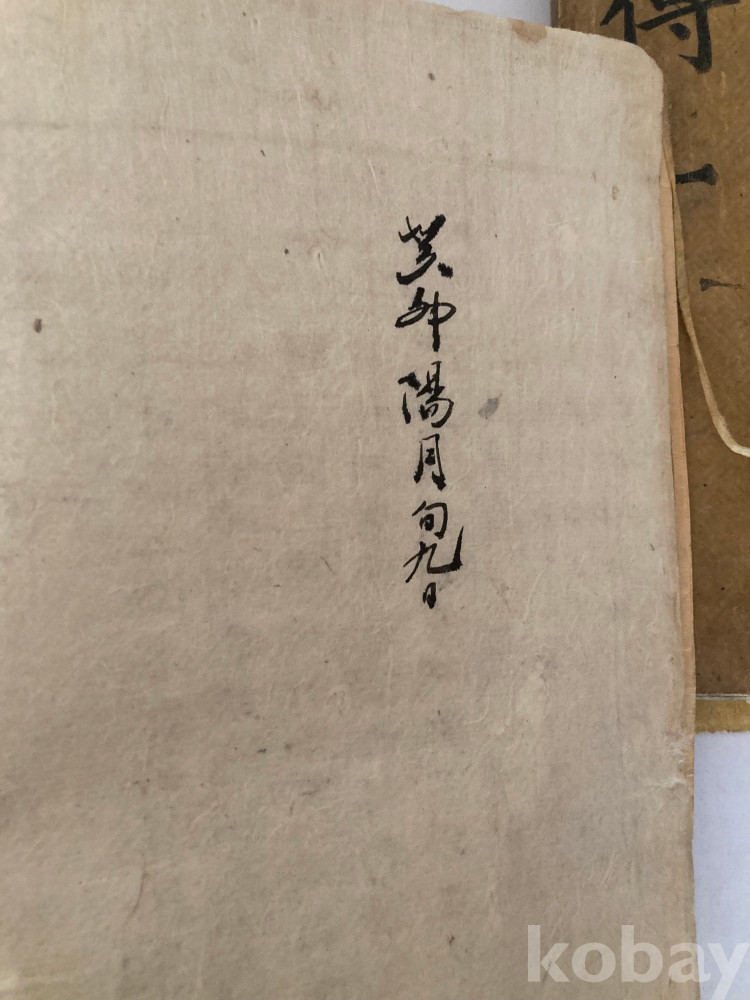 傳
一
癸卯陽月旬九日
kobay